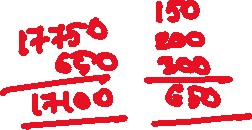 17750
650
17100
150
200
300
650